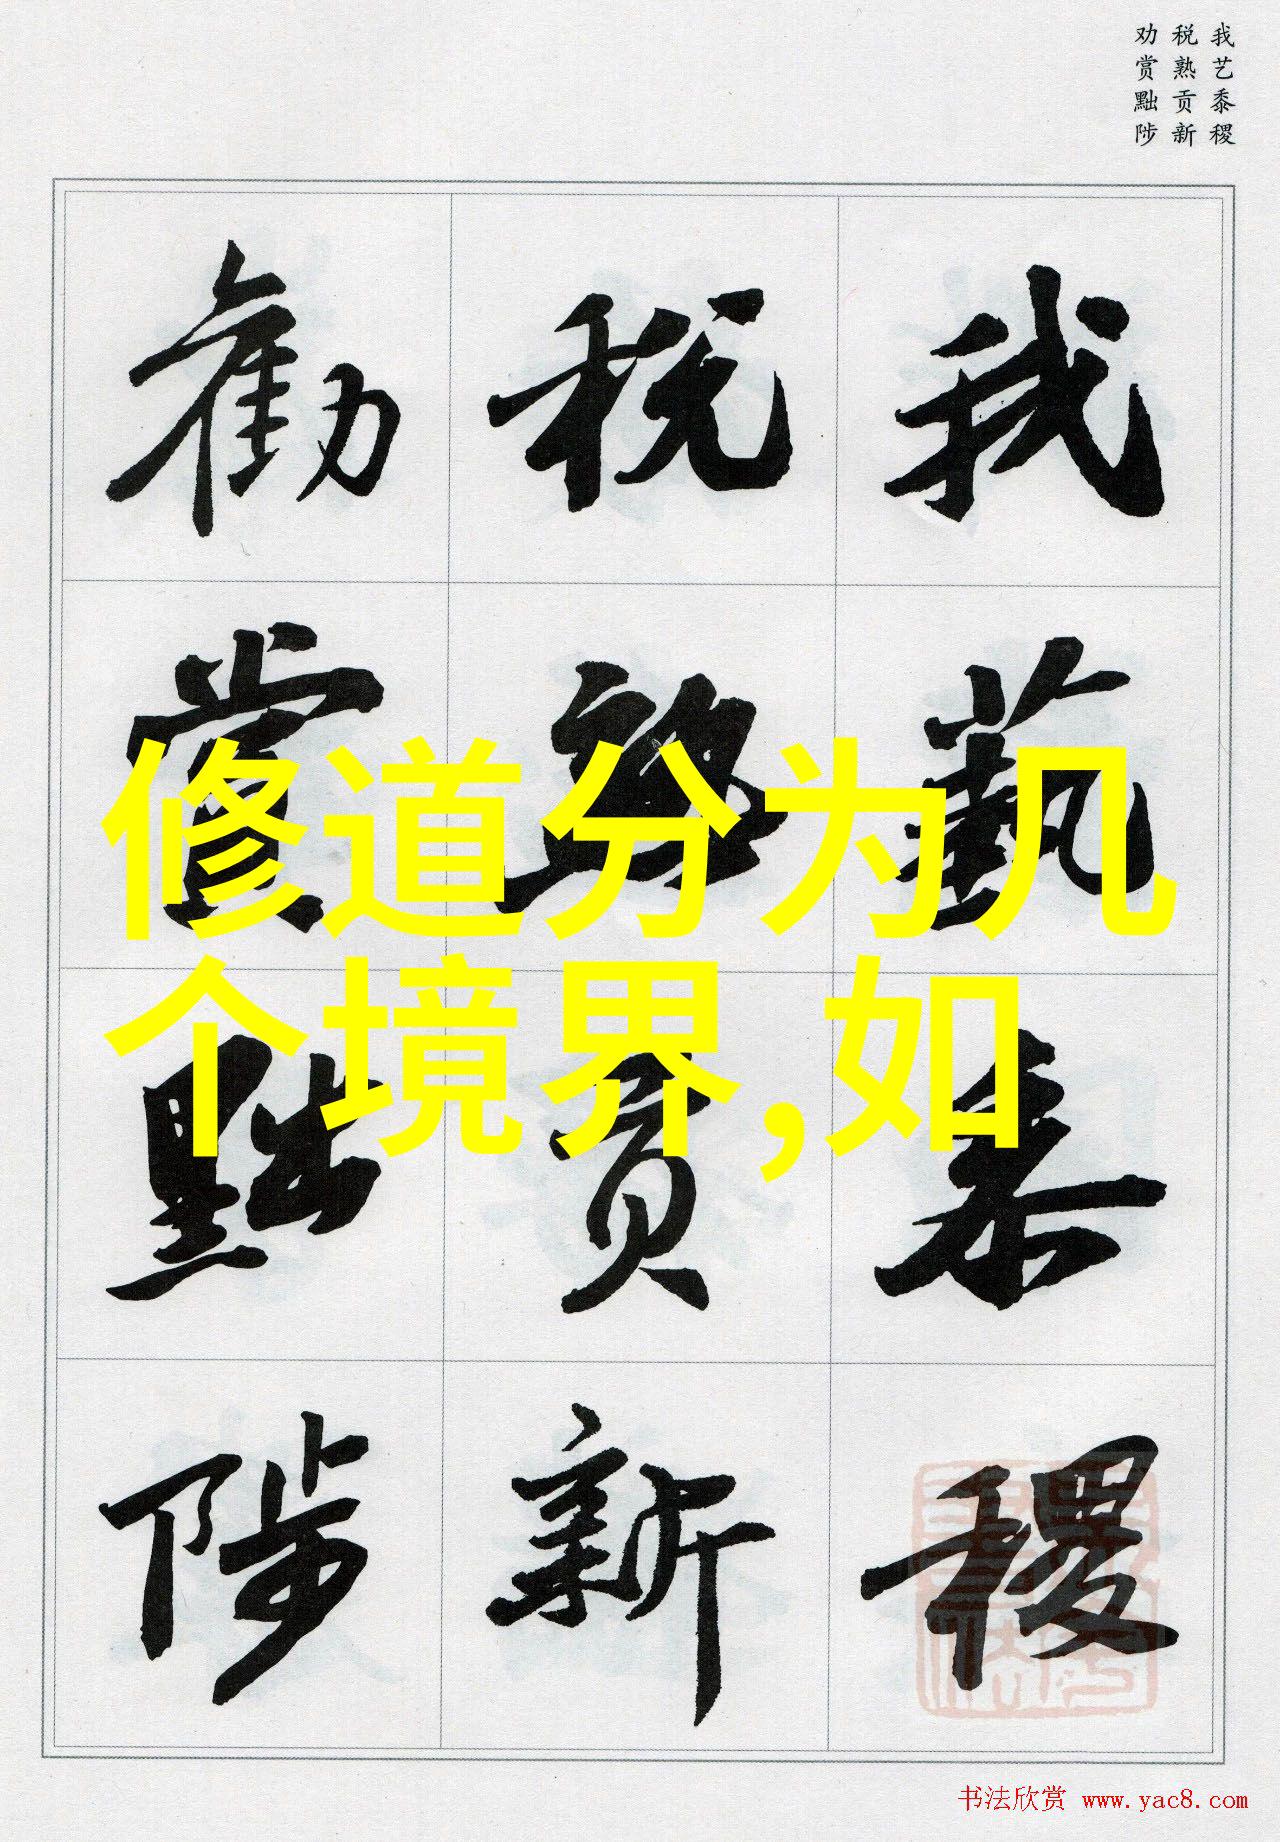 我艺黍稷
税熟贡新
劝赏黜陟
我藝黍稷
税熟貢新
勸賞黜陟
修道分为几
个境界,如
书法欣赏 www.yac8.com